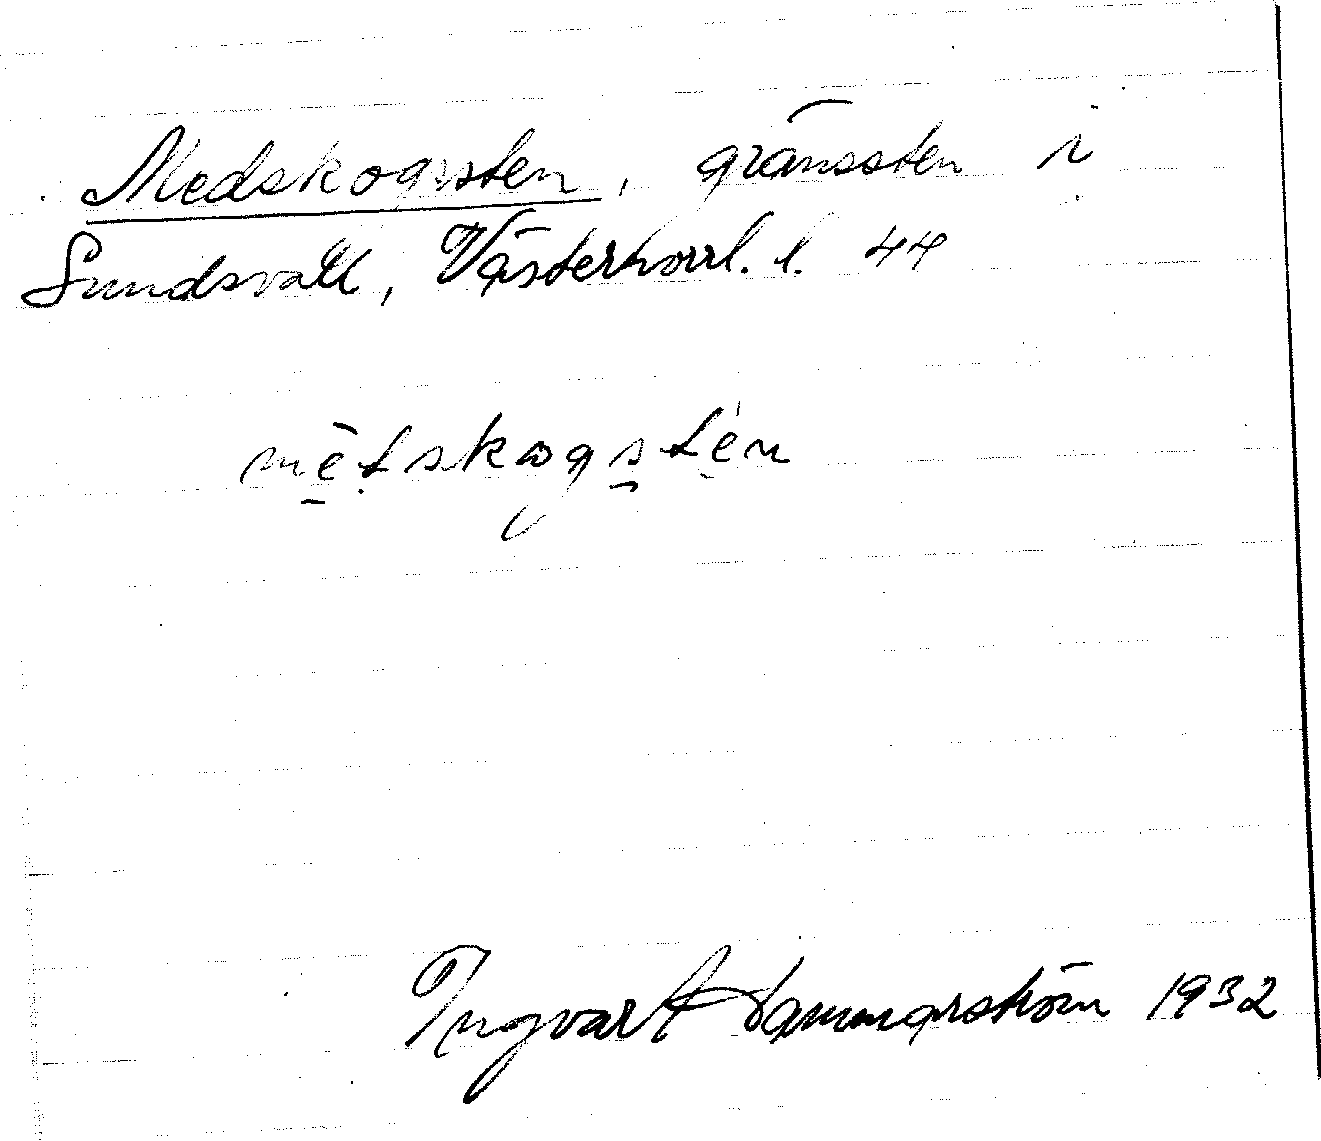 Medskogssten, gränssten i
Sundsvall, Västernorrl. l. 44
mētskogstén
Ingvar Hammarström 1932